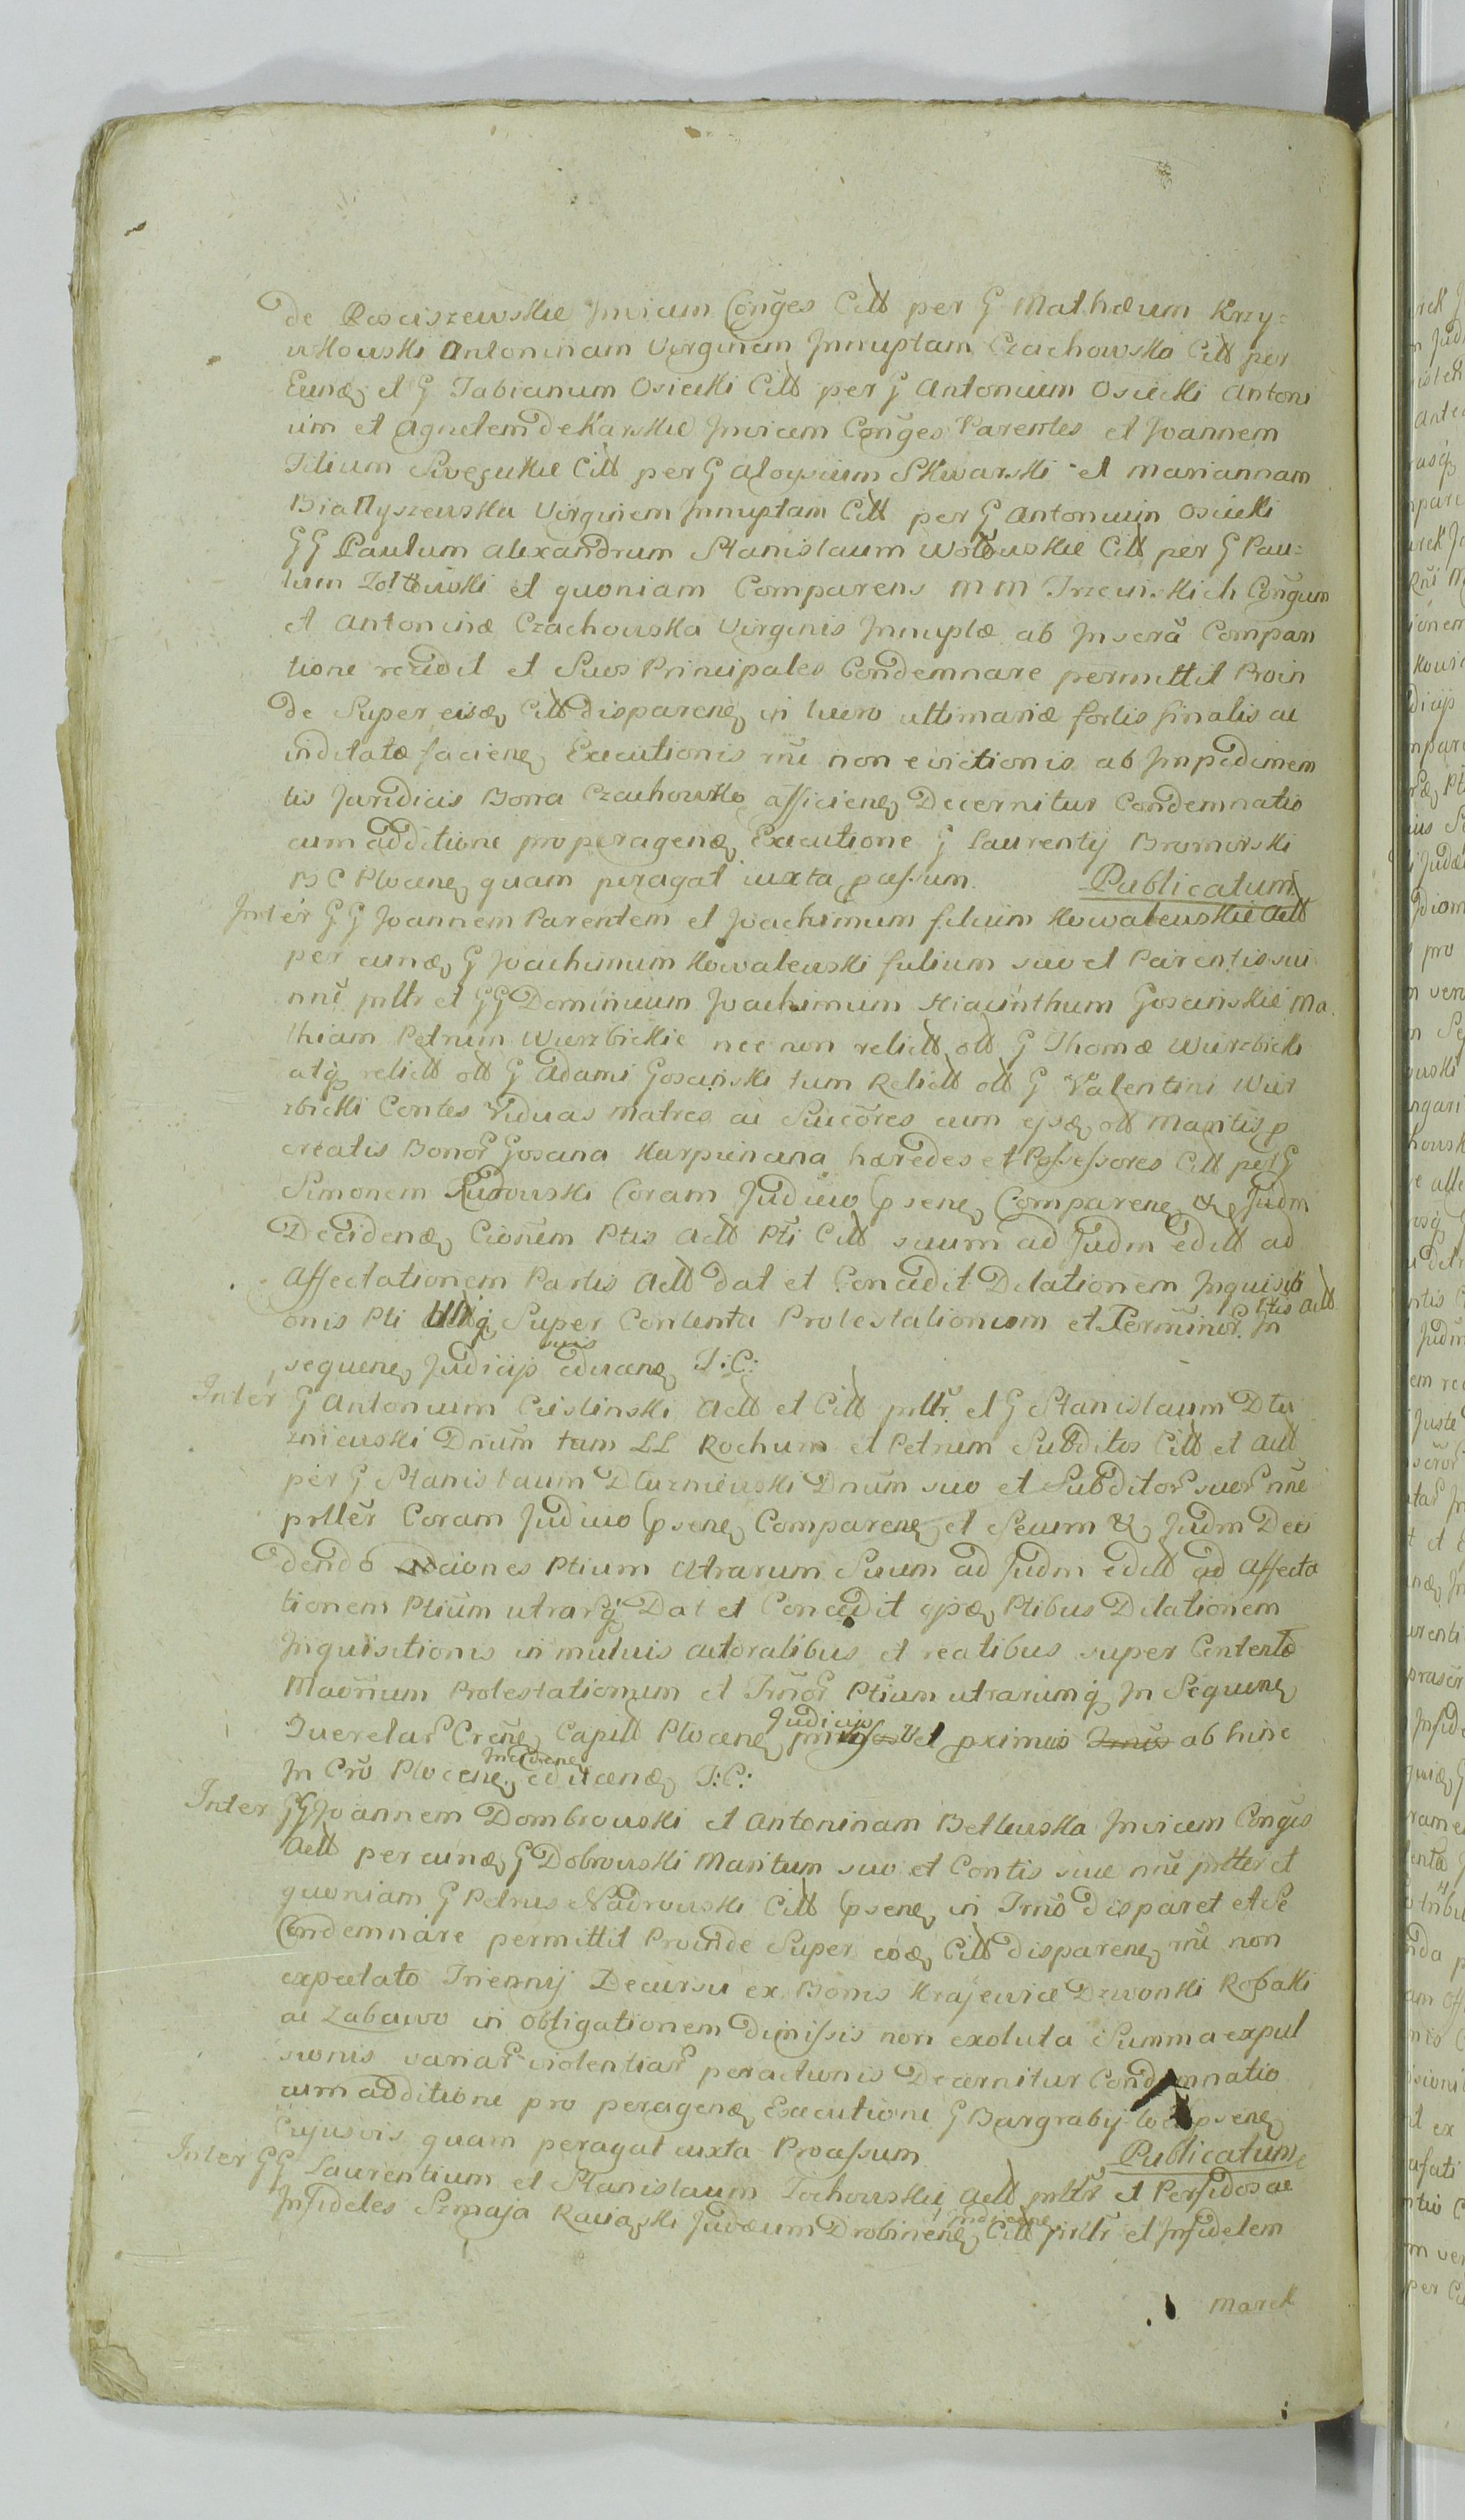 de Rosciszewskie Invicum Coñges Citt per G Mathæum Krzy=
wkowski Antoninam Virginem Innuptam Czachowska Citt per
Eund et G Fabianum Osiecki Citt per G Antonium Osiecki Antoni
um et Agnetem de Karskie Invicem Coñges Parentes et Joannem
Filium Citt per G Aloysium Skwarski et Mariannam
Virginem Innuptam Citt per G Antonium Osiecki
GG Paulum Alexandrum Stanislaum Citt per G Pau=
lum Zołtowski et quoniam Comparens MM Coñgum
et Antoninæ Czachowska Virginis Innuptæ ab Compari
tione recidit et Suos Principales Condemnare permittit Proin
de Super eisd Citt disparen in lucro ultimariæ fortis finalis ac
indilatæ facien Executionis rñe non evictionis ab Impedimen
tis Juridicis Bona Czachowko afficien Decernitur Condemnatio
cum additione pro peragend Executione G Laurentij Bromirski
B C Plocen quam peragat iuxta passum. Publicatum
Inter GG Joannem Parentem et Joachimum filium Kowalewskie Actt
per eund G Joachimum Kowalewski filium suo et Parentis sui
nñe prltr et GG Dominicum Joachimum Hiacinthum Goscińskie Ma
thiam Petrum Wierzbickie nec non relictt ott G Thomæ Wierzbicki
atq relictt ott G Adami tum Relictt ott G Valentini Wier
zbicki Contes Viduas Matres ac Succōres cum ipsæ ott Maritis p
creatis Bonor Gosana Karpienana hæredes et Possessores Citt per G
Simonem Rudowski Coram Judicio psen Comparen & Judm
Deciden Cionem Ptis Actt Pti Citt suum ad Judm edett ad
Affectationem Partis Actt Dat et Concedit Dilationem Inquisiti
onis Pti Super Contenta Protestationum et Terminor Ptis Actt In
sequen Judicijs suis educen I: C:
Inter G Antonium Cieslinski Actt et Citt prltr et G Stanislaum Dłu
zniewski Dnum tum LL Rochum et Petrum Subditos Citt et Actt
per G Stanislaum Dłuzniewski Dnum suo et Subditor suor nñe
prltter Coram Judicio psen Comparen et Seium & Judm Deci
dendo Ciones Ptium Utrarum Suum ad Judm edett ad Affecta
tionem Ptium utrarq Dat et Concedit ipsæ Ptibus Dilationem
Inquisitionis in mutuis actoralibus et reatibus super Contentis
Protestationum et Tmor Ptium utrarumq In Sequen
Querelar Cren Capitt Plocen Judicijs vel pximis ab hinc
In Cro Plocen In educen I: C:
Inter GG Joannem Dombrowski et Antoninam Betlewska Invicem Conges
Actt per eund G Dobrowski Maritum suo et Contis suæ nñe prltter et
quoniam G Petrus Nadrowski Citt psen in Tmo disparet et Se
Condemnare permittit Proinde Super eod Citt disparen rñe non
expectato Triennij Decursu ex Bonis Krajewice Dzwonki Robaki
ac Zabawo in obligationem dimissis non exoluta Summa expul
sionis variar violentiar peractionis Decernitur Condemnatio
cum additione pro peragend Executione G Burgrabij loci psen
Cujusvis quam peragat iuxta Processum. Publicatum
Inter GG Laurentium et Stanislaum Zochowskie Actt prltr et Perfidos ac
Infideles Szmaja Judæum Drobinen Citt prltr et Infidelem
Marek